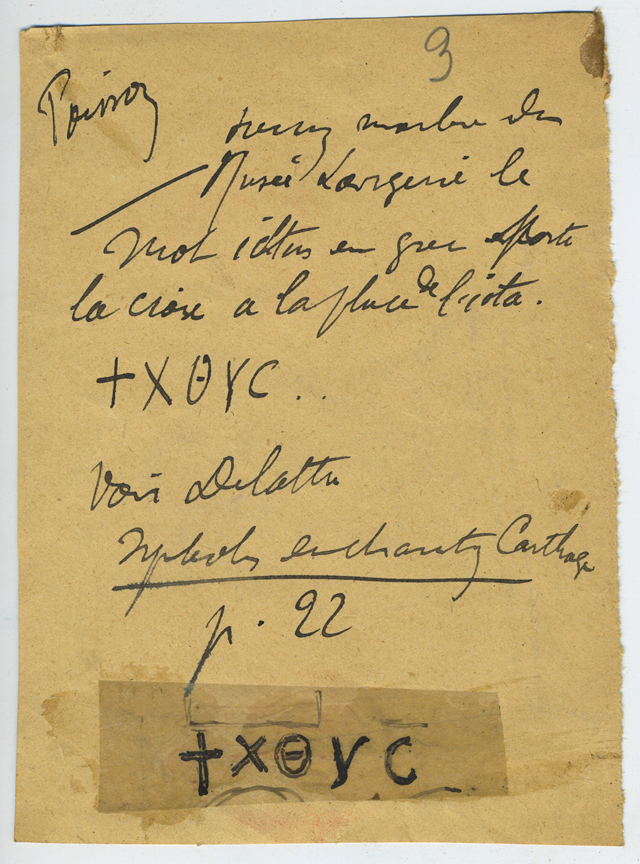 9
Poisson
sur un marbre du
Musée Lavigerie le
mot icttus en grec porte
la croix a la place de l'iota.
+ X Θ Y C . .
Voir Delattre
Symboles eucharistiq Carthage
p. 22
+ X Θ Y C